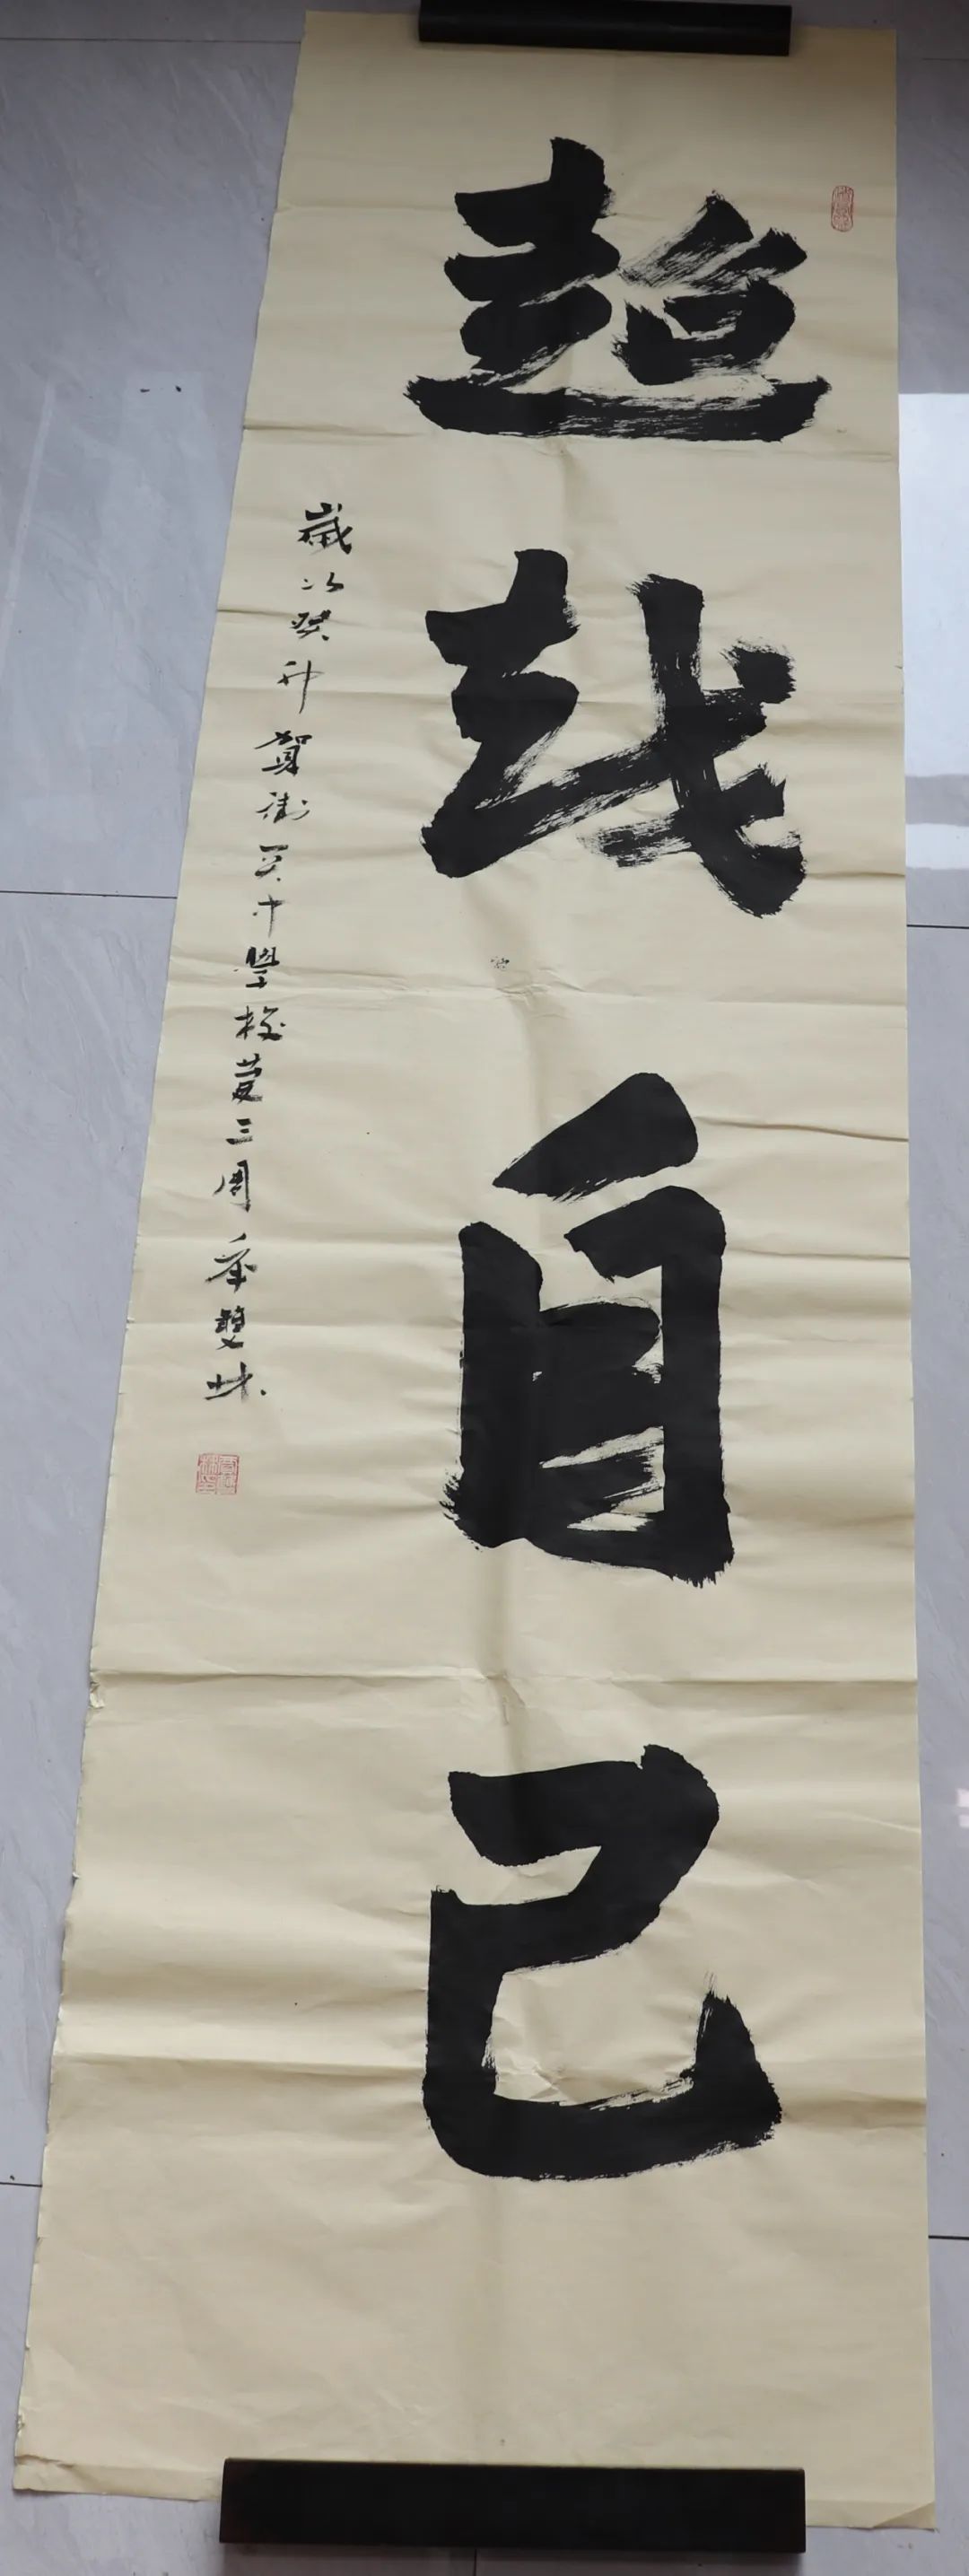 超越自己
歲次癸卯賀衡天中學校慶三周年雙林